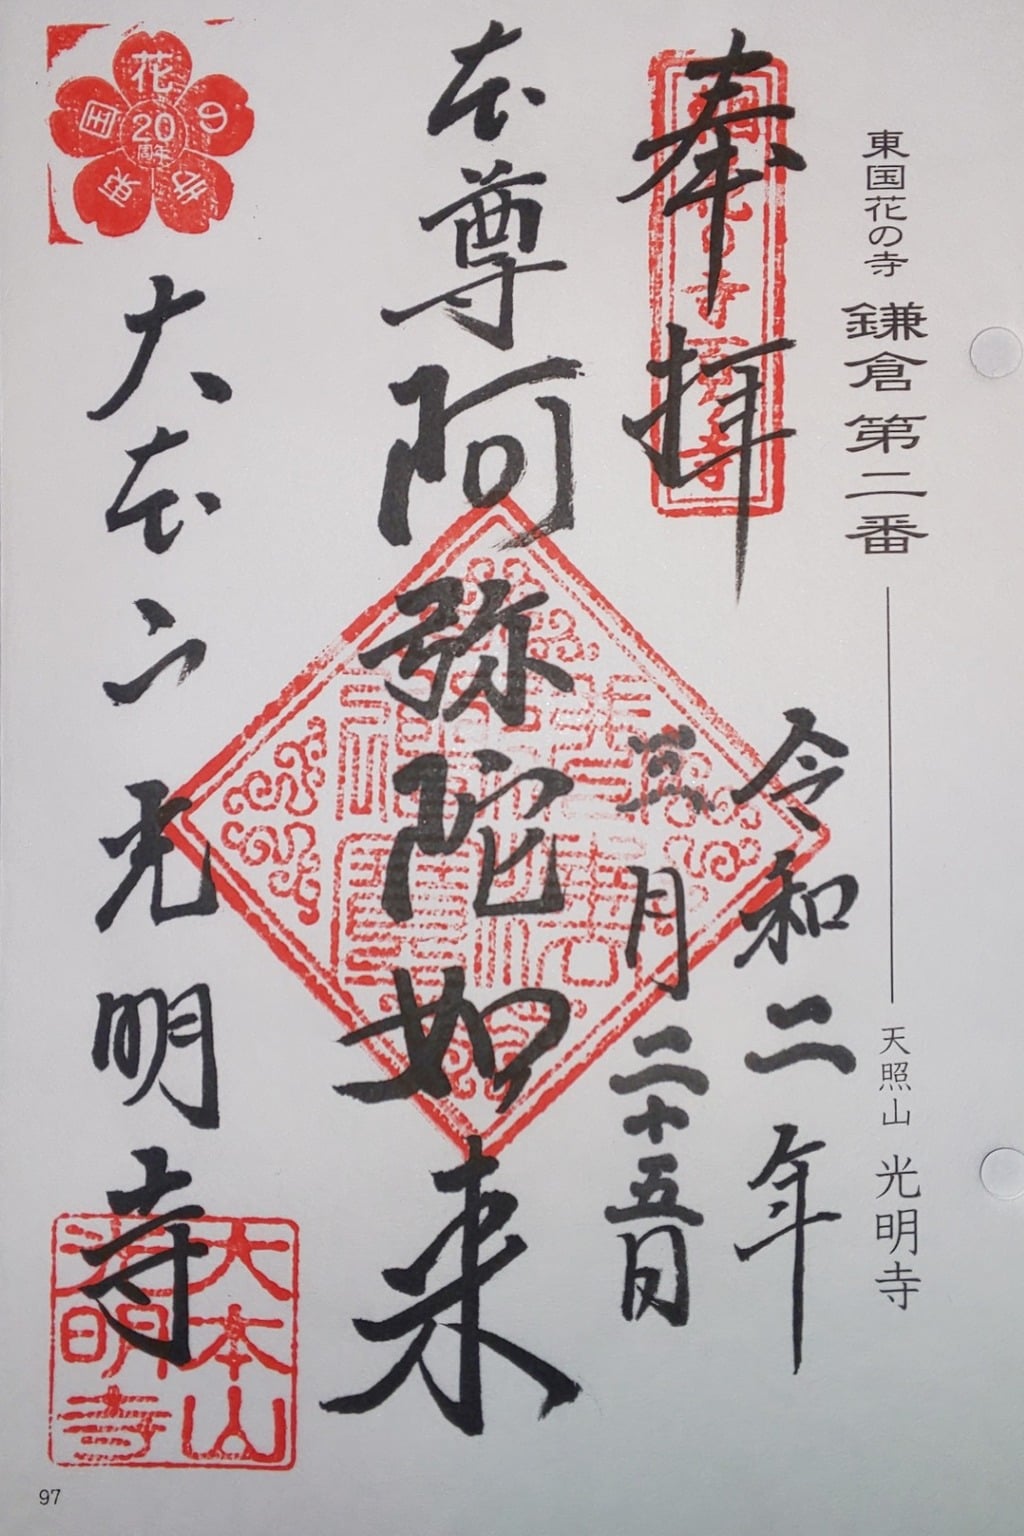 東国花の寺 鎌倉第二番 天照山 光明寺
奉拝
令和二年
三月二十五日
本尊阿弥陀如来
大本山光明寺
東国花の寺
20
周年
花の寺百ヶ寺
大本山
光明寺
97